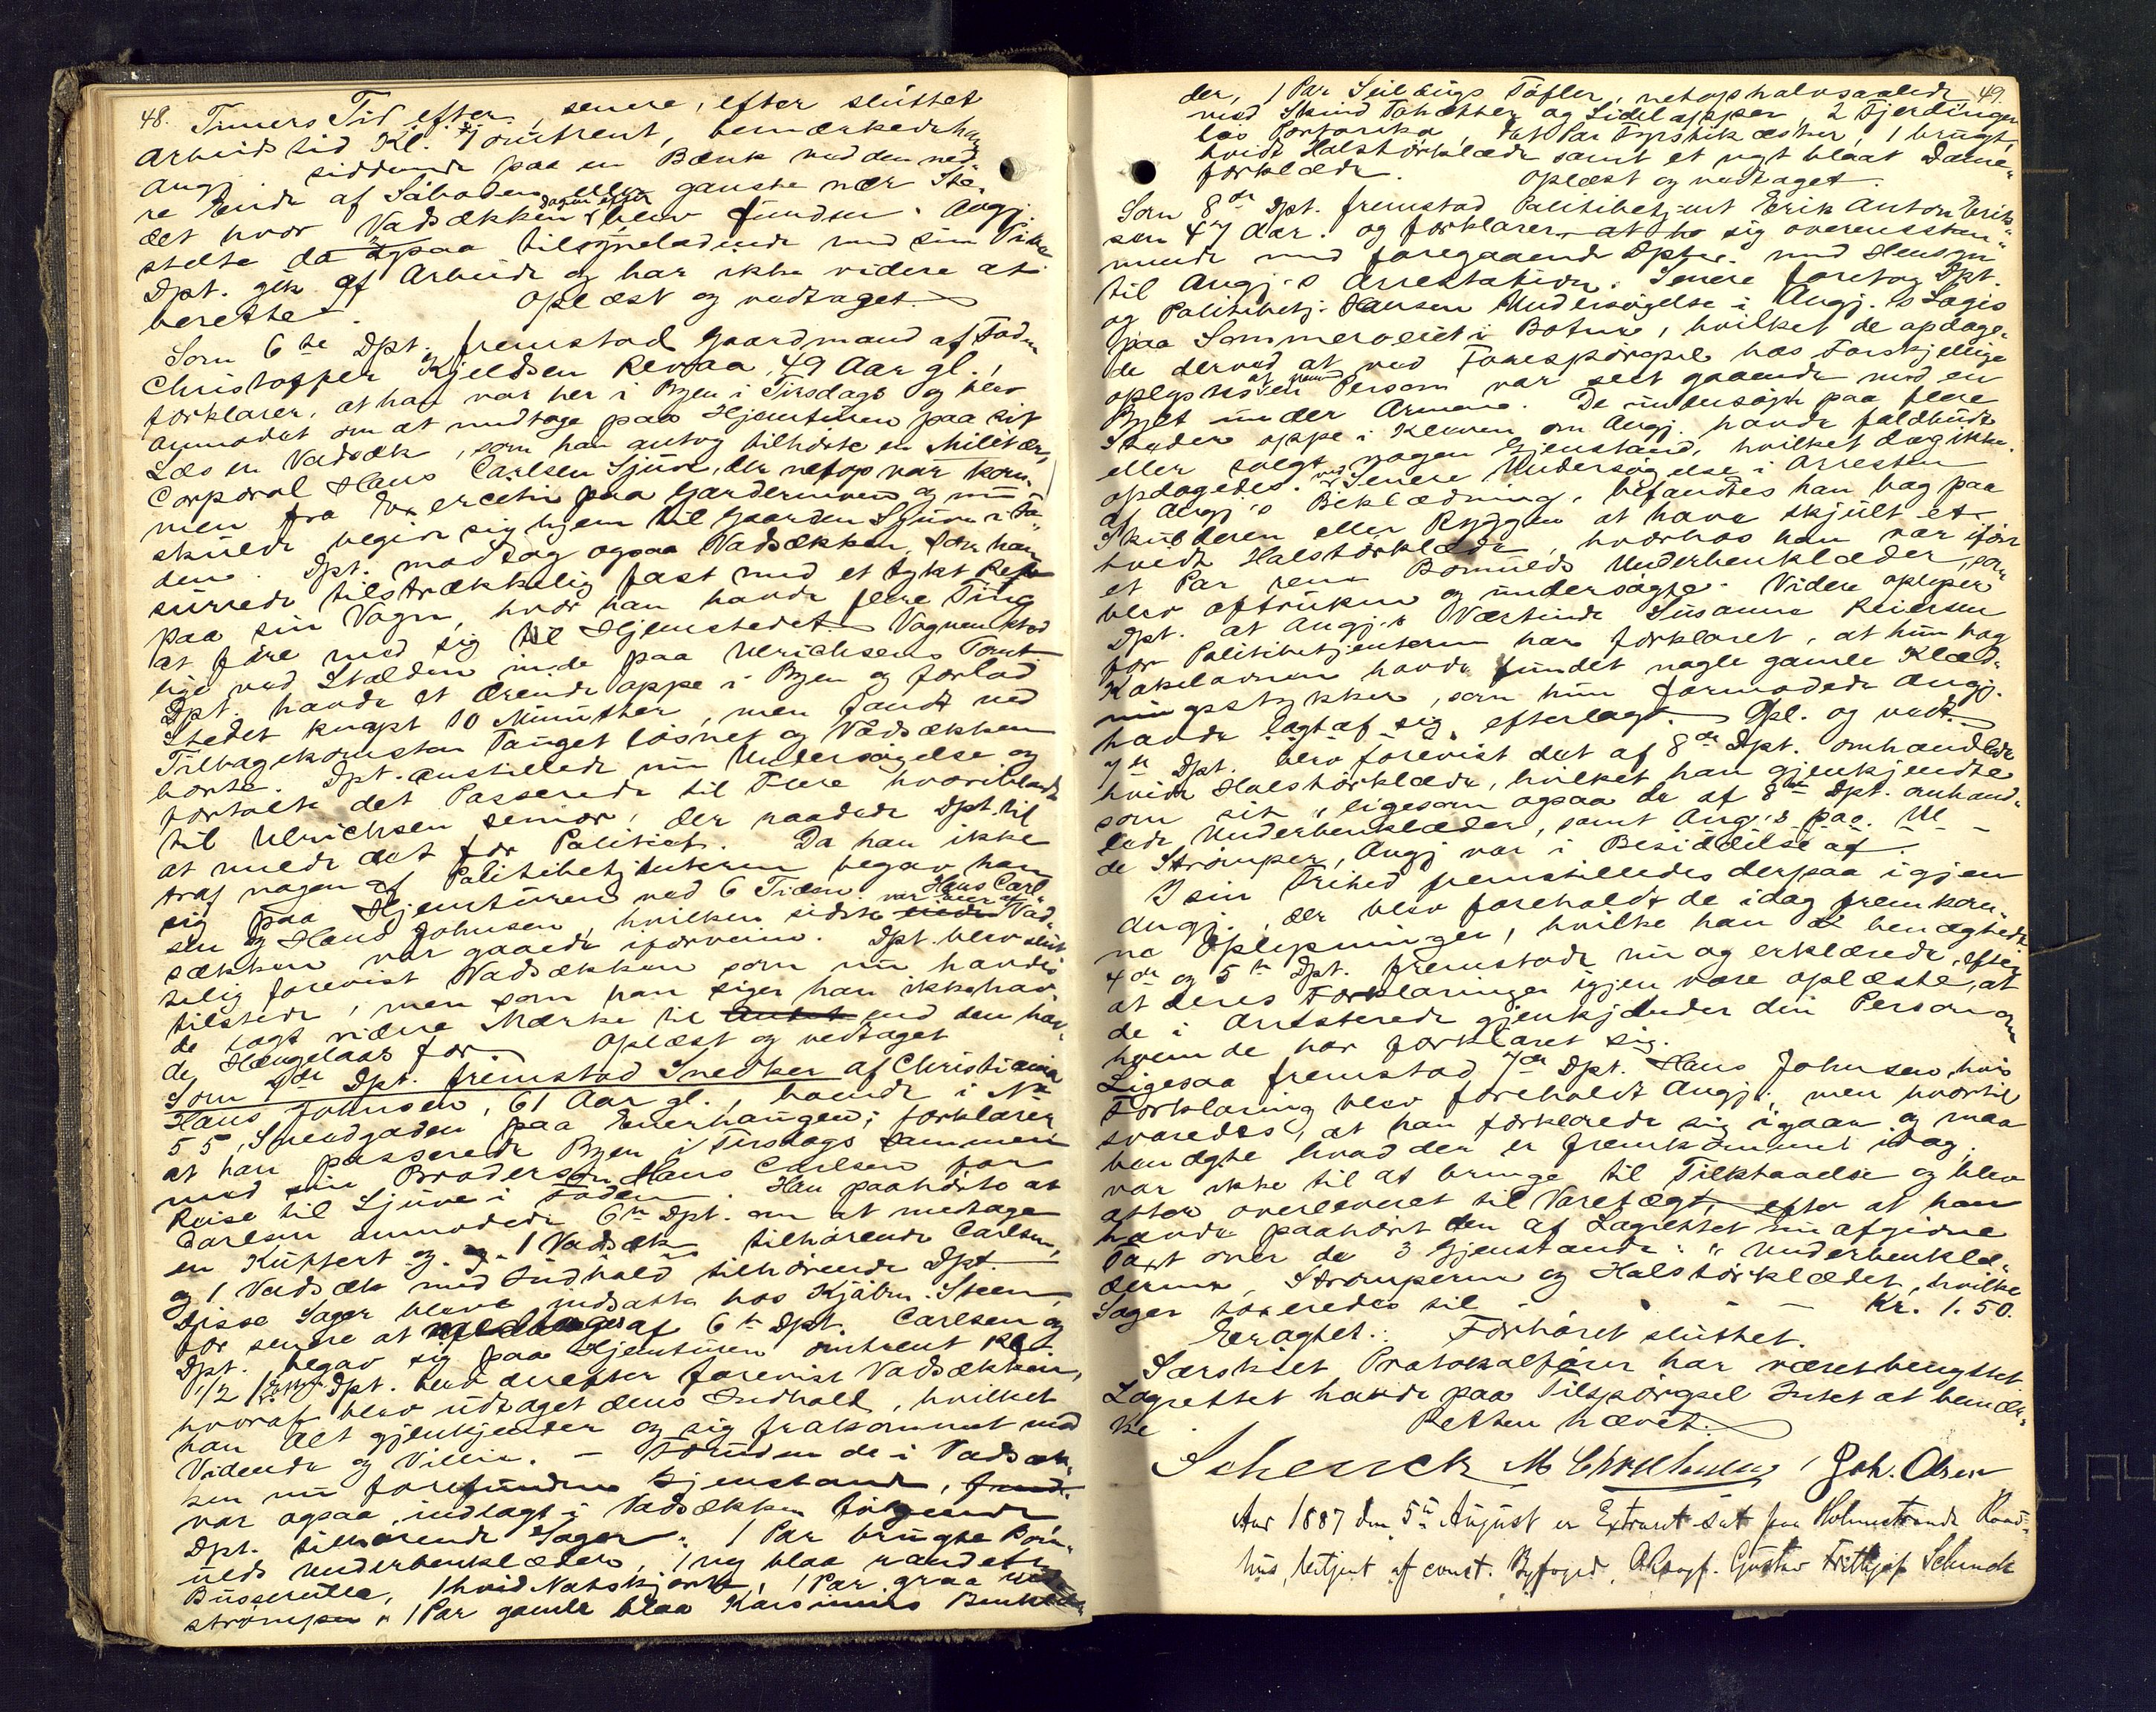 48.
Timers Tid efter, senere, efter sluttet
Arbeidstid Kl. 7 omtrent, bemærkede han
Angj. siddende paa en Bænk ved den ned-
re Ende af Saboden eller ganske nær Ste-
det hvor Vadsækken dagen efter blev funden. Angj.
stelte da ogsaa tilsyneladende med sin
Dpt. gik af Arbeide og har ikke videre at
berette. Oplæst og vedtaget.
Som 6te Dpt. fremstod Gaardmand af Fod
Christoffer Kjeldsen Revaa, 49 Aar gl.,
forklarer, at han var her i Byen i Tirsdags og blev
anmodet om at medtage paa Hjemturen paa sit
Læs en Vadsæk, som han antog tilhørte en Militær,
Corporal Hans Carlsen Sjuve, der netop var kom-
men fra Exercetie paa Gardermoen og nu
skulde begive sig hjem til Gaarden Sjuve i Fo-
den. Dpt. modtog ogsaa Vadsækken, som han
surrede tilstrækkelig fast med et tykt Reb
paa sin Vogn, hvor han havde flere Ting
at føre med sig til Hjemstedet. Vognen stod
lige ved Stalden inde paa Ulrichsens Tomt.
Dpt. havde et Ærinde oppe i Byen og forlod
Stedet knapt 10 Minutter, men fandt ved
Tilbagekomsten Tauget løsnet og Vadsækken
borte. Dpt. anstillede nu Undersøgelse og
fortalte det Passerede til Flere hvoriblandt
til Ulrichsen senior, der raadede Dpt. til
at melde det for Politiet. Da han ikke
traf nogen af Politibetjenterne begav han
sig paa Hjemturen ved 6 Tiden. Hans Carl-
sen og Hans Johnsen, hvilken sidste var eier af Vad-
sækken var gaaede iforveien. Dpt. blev slut-
telig forevist Vadsækken som nu havdes
tilstede, men som han siger han ikke hav-
de lagt videre Mærke til end den hav-
de Hængelaas for. Oplæst og vedtaget
Som 7de Dpt. fremstod Snedker af Christiania
Hans Johnsen, 61 Aar gl., boende i No
55, Smedgaden paa Enerhaugen; forklarer
at han passerede Byen i Tirsdags sammen
med sin Brodersøn Hans Carlsen for
Reise til Sjuve i Foden. Han paahørte at
Carlsen anmodede 6te Dpt. om at medtage
en Kuffert og 1 Vadsæk tilhørende Carlsen,
og 1 Vadsæk med Indhold tilhørende Dpt.
Disse Sager bleve indsatte hos Kjøbm. Steen,
for senere at af 6te Dpt. Carlsen og
Dpt. begav sig paa Hjemturen omtrent Kl.
1/2 Dpt. blev derefter forevist Vadsækken,
hvoraf blev udtaget dens Indhold, hvilket
han Alt gjenkjender og sig frakommet mod
Vidende og Villie. — Foruden de i Vadsæk-
ken nu forefundne Gjenstande,
var ogsaa indlagt i Vadsækken følgende
Dpt. tilhørende Sager: 1 Par brugte Bom-
ulds Underbenklæder, 1 ny blaa randet
Busserulle, 1 hvid Natskjorte, 1 Par graa
strømper, 1 Par gamle blaa Benklæ-
49.
der, 1 Par Seildugs Tøfler, netop halvsaalede
med Skind Tahætter og Sidelapper, 2 Fjerdinger
løs Portorika, Par Fyrstikæsker, 1 brugt
hvidt Halstørklæde samt et nyt blaat Dame-
forklæde. Oplæst og vedtaget.
Som 8de Dpt. fremstod Politibetjent Erik Anton Erik-
sen 47 Aar. og forklarer sig overensstem-
mende med foregaaende Dpter. med Hensyn
til Angj.s Arrestation. Senere foretog Dpt.
og Politibetj. Hansen Undersøgelse i Angj.s Logis
paa Sommerveiet i Botne, hvilket de opdage-
de derved at ved Forespørgsel hos Forskjellige
oplystes at en Person var seet gaaende med en
Bylt under Armene. De undersøgte paa flere
Steder oppe i Kleven om Angj. havde falbudt
eller solgt nogen Gjenstand, hvilket dog ikke
opdagedes. Ved senere Undersøgelse i Arresten
af Angj.s Beklædning, befandtes han bag paa
Skulderen eller Ryggen at have skjult et
hvidt Halstørklæde, hvorhos han var iført
et Par rene Bomulds Underbenklæder, som
blev aftrukne og undersøgte. Videre oplyser
Dpt. at Angj.s Værtinde Susanne Reiersen
for Politibetjenterne har forklaret, at hun bag
Kakelovnen havde fundet nogle gamle Klæd-
ningsstykker, som hun formodede Angj.
havde lagt af sig efterlagt. Opl. og vedt.
7de Dpt. blev forevist det af 8de Dpt. omhandlede
hvide Halstørklæde, hvilket han gjenkjendte
som sit, ligesom ogsaa de af 8de Dpt. omhand-
lede Underbenklæder, samt Angj.s paa.
de Strømper, Angj. var i Besiddelse af.
I sin Frihed fremstilledes derpaa igjen
Angj., der blev foreholdt de idag fremkom-
ne Oplysninger, hvilke han benægtede
4de og 5te Dpt. fremstode nu og erklærede, efter
at deres Forklaringer igjen vare oplæste, at
de i Arresterede gjenkjender den Person om
hvem de har forklaret sig.
Ligesaa fremstod 7de Dpt. Hans Johnsen, hvis
Forklaring blev foreholdt Angj., men hvortil
svaredes, at han forklarede sig igaar og maa
benægte hvad der er fremkommet idag,
var ikke til at bringe til Tilstaaelse og blev
atter overleveret til Varetægt, efter at han
havde paahørt den af Lagrettet nu afgivne
Taxt over de 3 Gjenstande: Underbenklæ-
derne, Strømperne og Halstørklædet, hvilke
Sager taxeredes til — — — Kr. 1.50.
Eragtet: Forhøret sluttet.
Særskilt Protokolfører har været benyttet
Lagrettet havde paa Tilspørgsel Intet at bemær-
ke. Retten hævet.
Schenck Joh. Olsen
Aar 1887 den 5te August er Extraret sat paa Holmestrands Raad-
hus, betjent af const. Byfoged, Gustav Frithjof Schenck